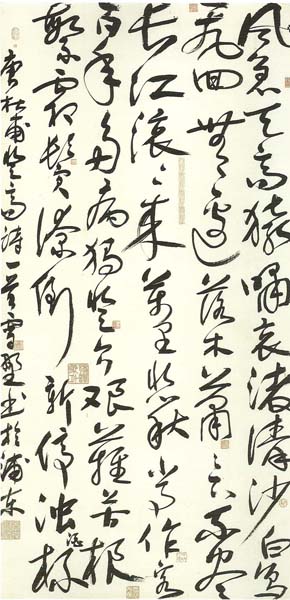 風急天高猿嘯哀渚清沙白鳥
飛回無邊落木蕭々下不盡
長江滾々來萬里悲秋常作客
百年多病獨登台艱難苦恨
繁霜鬢潦倒新停濁酒杯
唐杜甫登高詩一首雪書於浦東